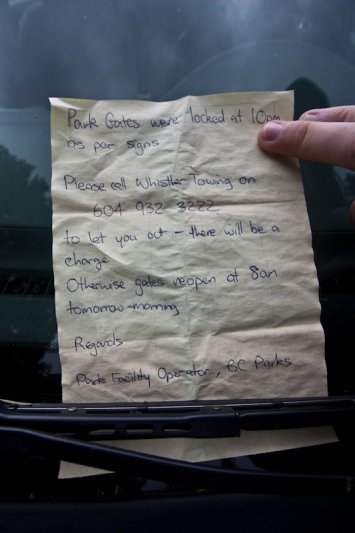 Park Gates were locked at 10pm
as per signs
Please call Whistler Towing on
604 932 3222
to let you out - there will be a
charge
Otherwise gates reopen at 8am
tomorrow morning
Regards
Park Facility Operator, BC Parks